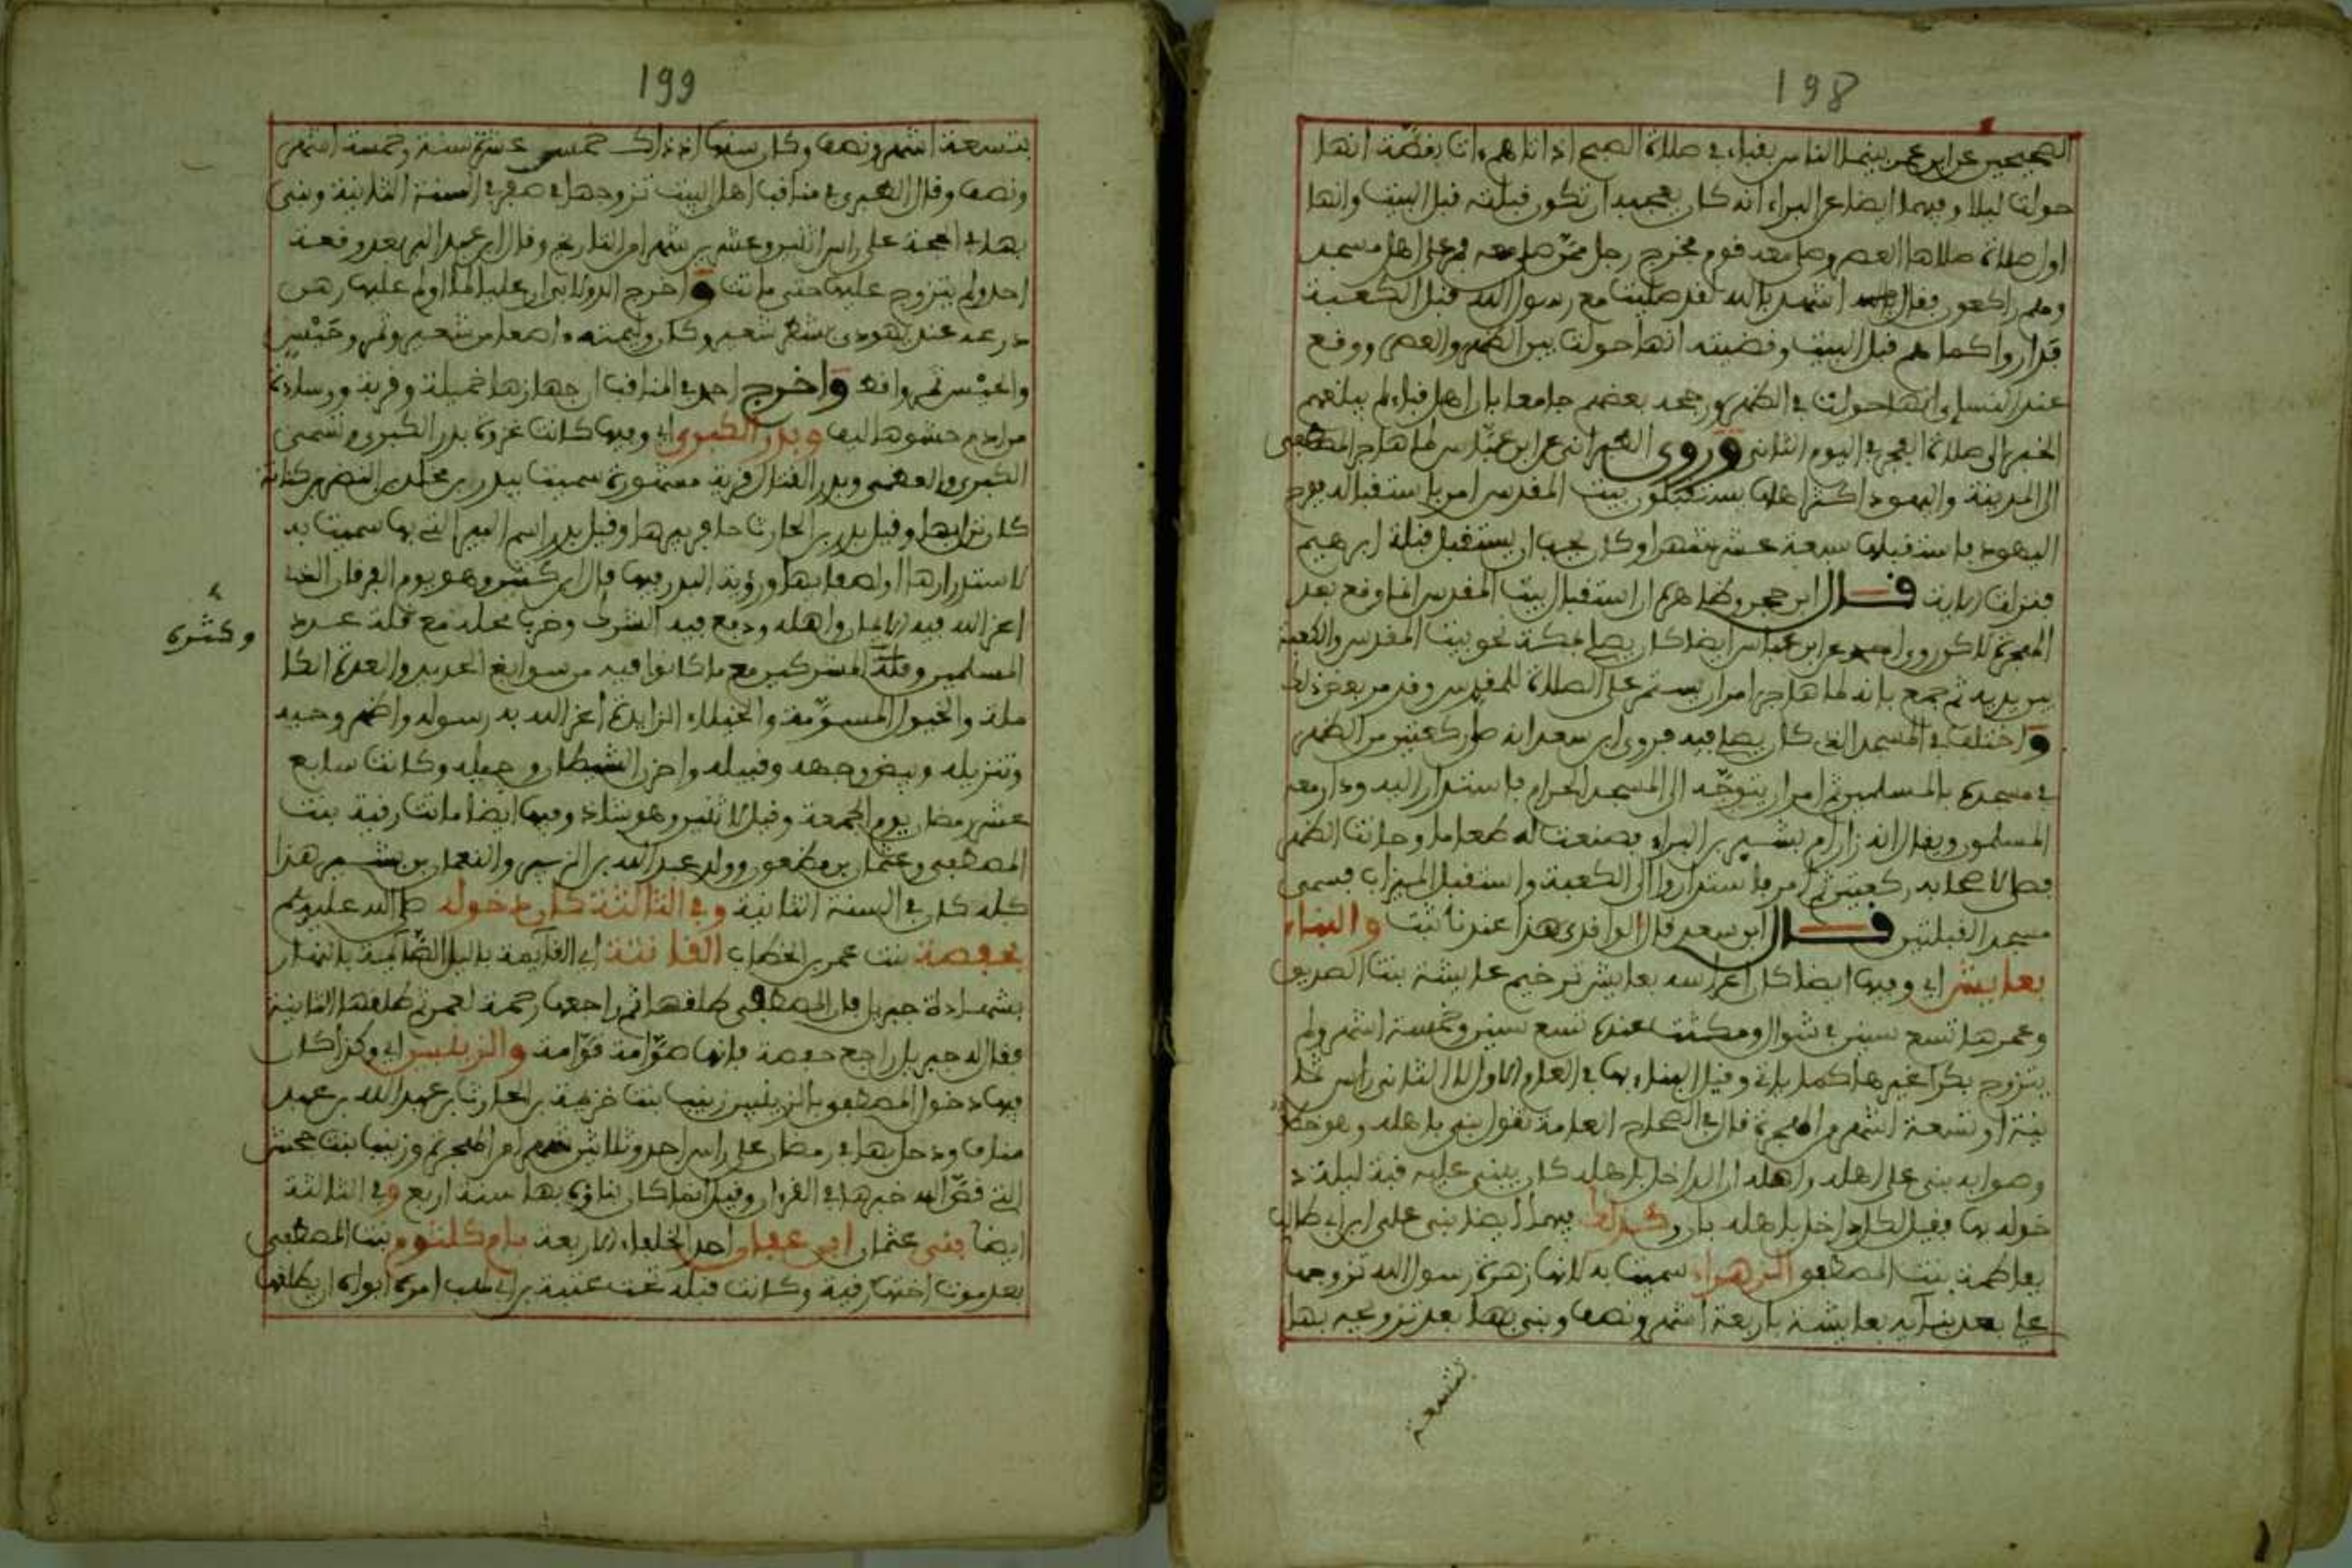 198
الصحيحين عن ابن عمر بينما الناس بقباء في صلاة الصبح اذ اتاهم ءات بفصة انها
حولت ليلا وفيهما ايضا عن البراء انه كان يعجبه ان تكون قبلته قبل البيت وانها
اول صلاة صلاها العصر وصلى معه قوم فخرج رجل ممن صلى معه فمر على اهل مسجد
وهم راكعون فقال اشهد بالله لقد صليت مع رسول الله قبل الكعبة
فدار واكما هم قبل البيت وقضيته انها حولت بين الظهر والعصر ووقع
عند النساءي انها حولت في الظهر وجمع بعضهم جامعا بان اهل قباء لم يبلغهم
الخبر الى صلاة الفجر في اليوم الثاني وروى الطبراني عن ابن عباس لما هاجر المصطفى
الى المدينة واليهود اكثر اهلها يستقبلون بيت المقدس امر باستقباله ففرح
اليهود فاستقبلها سبعة عشر شهرا وكان يحب ان يستقبل قبلة ابرهيم
فنزلت الاية قال ابن حجر وظاهره ان استقبال بيت المقدس انما وقع بعد
الهجرة لاكن روى احمد عن ابن عباس ايضا كان يصلي بمكة نحو بيت المقدس والكعبة
بين يديه ثم جمع بانه لما هاجر امر ان يستمر على الصلاة للمقدس وقد مر بعض ذلك
واختلف في المسجد الذي كان يصلي فيه فروى ابن سعد انه صلى ركعتين من الظهر
في مسجده بالمسلمين ثم امر ان يتوجه الى المسجد الحرام فاستدار اليه ودار معه
المسلمون ويقال انه زار ام بشير بن البراء فصنعت له طعاما وحانت الظهر
فصلى باصحابه ركعتين ثم امر فاستداروا الى الكعبة واستقبل الميزاب فسمي
مسجد القبلتين قال ابن سعد قال الواقدي هذا عندنا ثبت والبناء
بعايش اي وفيها ايضا كان اعراسه بعايش ترخيم عايشة بنت الصديق
وعمرها تسع سنين في شوال ومكثت عنده تسع سنين وخمسة اشهر ولم
يتزوج بكرا غيرها كما ياتي وقيل البناء بها في العام الاول لا الثاني راس ثما
نية او تسعة اشهر من الهجرة قال في الصحاح العامة تقول بنى باهله وهو خطا
وصوابه بنى على اهله واصله ان الداخل باهله كان يبنى عليه قبة ليلة د
خوله بها فقيل لكل داخل باهله بان وكذلك فيها ايضا بنى علي بن ابي طالب
بفاطمة بنت المصطفى الزهراء سميت به لانها زهرة رسول الله تزوجها
علي بعد بنائه بعايشة باربعة اشهر ونصف وبنى بها بعد تزوجه بها
بتسعة
199
بتسعة اشهر ونصف وكان سنها اذ ذاك خمس عشرة سنة وخمسة اشهر
ونصف وقال الطبري في مناقب اهل البيت تزوجها في صفر في السنة الثانية وبنى
بها في الحجة على راس اثنين وعشرين شهرا من التاريخ وقال ابن عبد البر بعد وقعة
احد ولم يتزوج عليها حتى ماتت واخرج الدولابي ان عليا لما اولم عليها رهن
درعه عند يهودي بشطر شعير وكان وليمته ءاصعا من شعير وتمر وحيس
والحيس تمر واقط واخرج احمد في المناقب ان جهازها خميلة وقربة ووسادة
من ادم حشوها ليف وبدر الكبرى اي وفيها كانت غزوة بدر الكبرى وتسمى
الكبرى والعظمى وبدر القتال قرية مشهورة سميت ببدر بن مخلد بن النضر بن كنانة
كان نزلها وقيل بدر بن الحارث حافر بيرها وقيل بدر اسم البير التي بها سميت به
لاستدارها او لصفايها ورؤية البدر فيها قال ابن كثير وهو يوم الفرقان الذي
اعز الله فيه الاسلام واهله ودمغ فيه الشرك وخرب محله مع قلة عدد
المسلمين وقلة المشركين مع ما كانوا فيه من سوابغ الحديد والعدة الكا
وكثرة
ملة والخيول المسومة والخيلاء الزايدة اعز الله به رسوله واظهر وحيه
وتنزيله وبيض وجهه وقبيله واخزى الشيطان وجيله وكانت سابع
عشر رمضان يوم الجمعة وقيل الاثنين وهو شاذ وفيها ايضا ماتت رقية بنت
المصطفى وعثمان بن مظعون وولد عبد الله بن الزبير والنعمان بن بشير هذا
كله كان في السنة الثانية وفي الثالثة كان دخوله صلى الله عليه وسلم
بحفصة بنت عمر بن الخطاب القانتة اي القايمة باليل الصايمة بالنهار
بشهادة جبريل فان المصطفى طلقها ثم راجعها رحمة لعمر ثم طلقها الثانية
فقال له جبريل راجع حفصة فانها صوامة قوامة والزينبين اي وكذا كان
فيها دخول المصطفى بالزينبين زينب بنت خزيمة بن الحارث بن عبد الله بن عمرو
مناف ودخل بها في رمضان على راس احد وثلاثين شهرا من الهجرة وزينب بنت جحش
التي قص الله خبرها في القرءان وقيل انما كان بناؤه بها سنة اربع وفي الثالثة
ايضا بنى عثمان ابن عفان احد الخلفاء الاربعة بام كلثوم بنت المصطفى
بعد موت اختها رقية وكانت قبله تحت عتيبة بن ابي لهب امره ابواه ان يطلقها